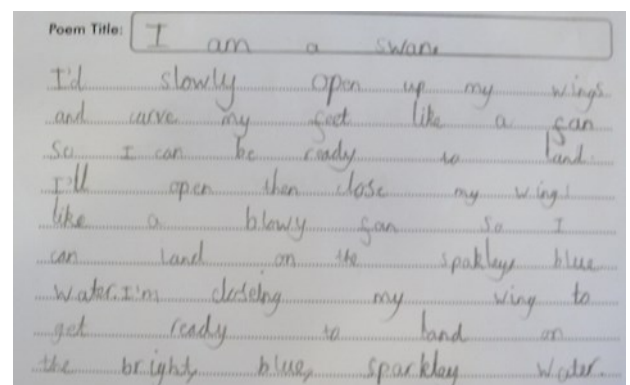 Poem Title: I am a swan.
I'd slowly open up my wings
and curve my feet like a fan
So I can be ready to land.
I'll open then close my wings
like a blowy fan so I
can land on the spakley blue
water. I'm closeing my wing to
get ready to land on
the bright, blue, sparkley water.